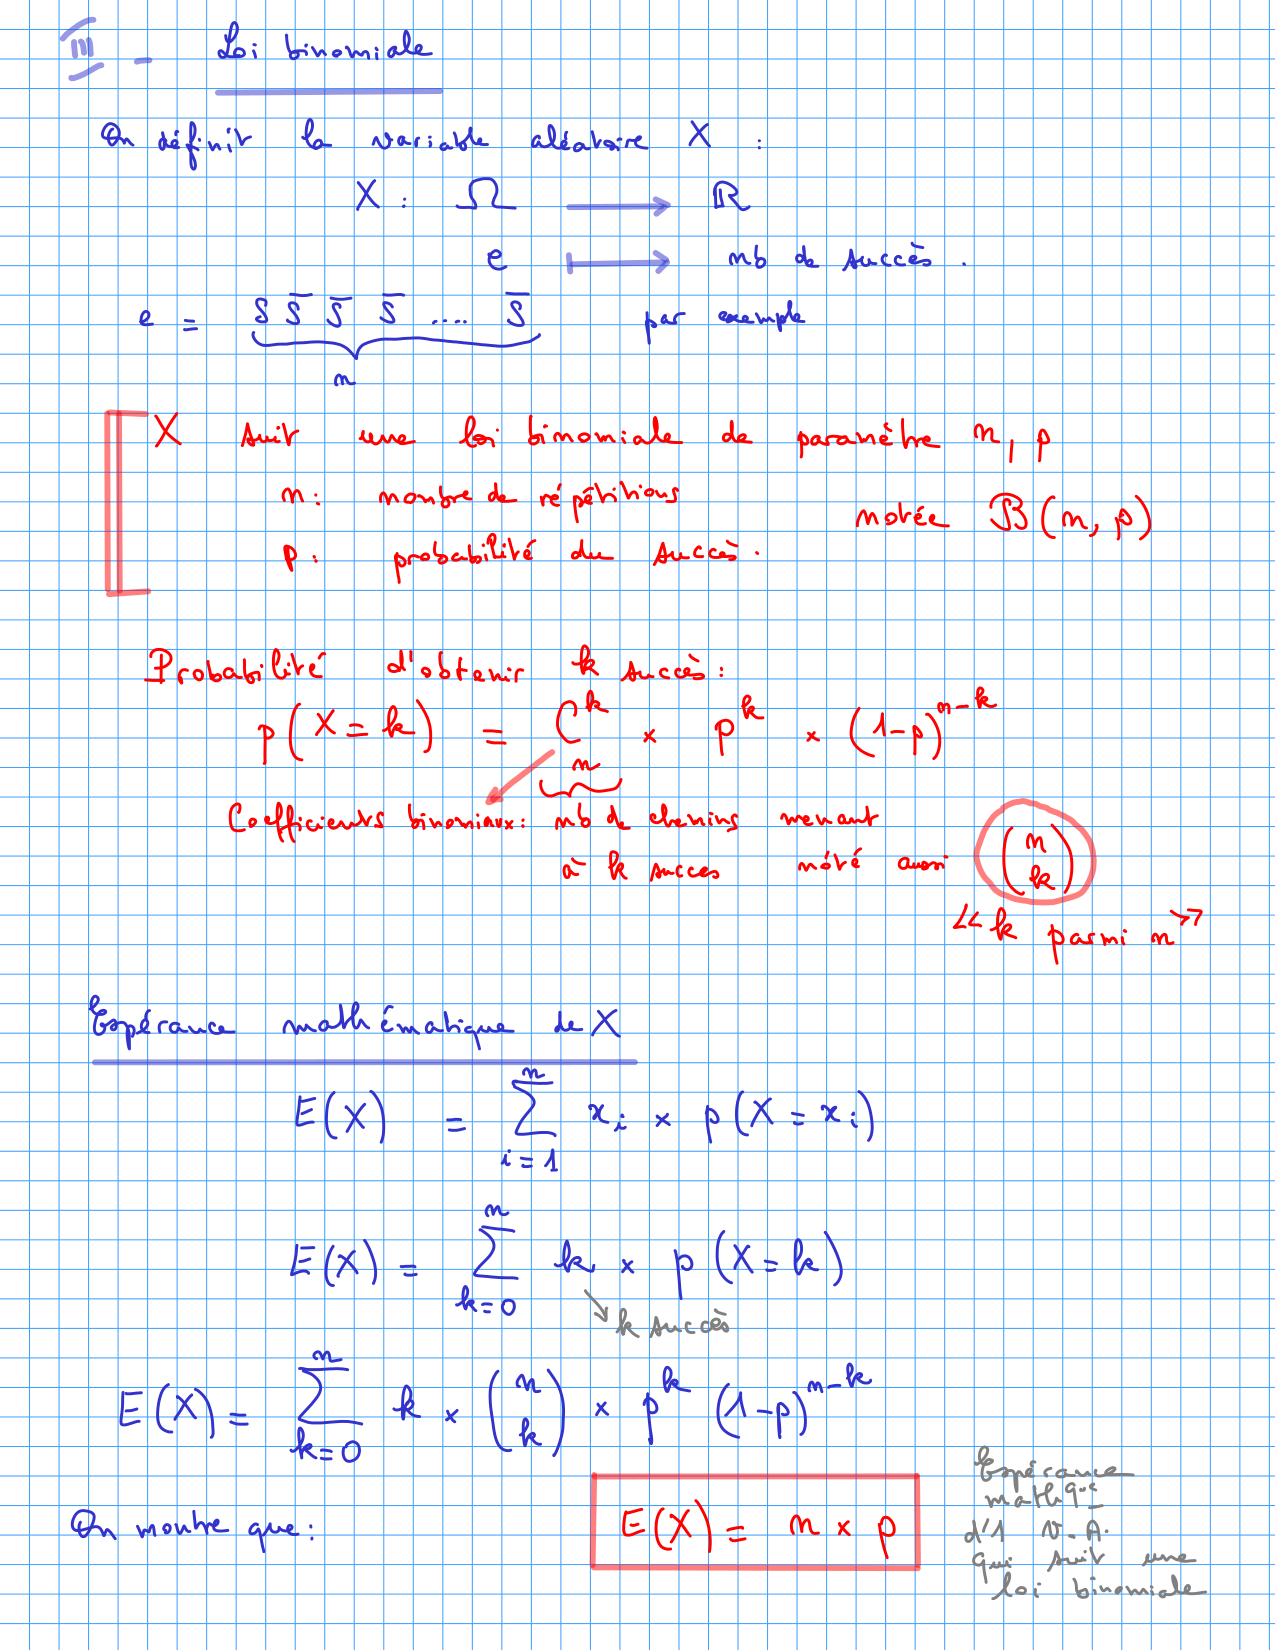 III - Loi binomiale
On définit la variable aléatoire X :
X : Ω ⟶ ℝ
e ⟼ nb de succès.
e = S S̅ S̅ S̅ .... S̅ par exemple
n
X suit une loi binomiale de paramètre n, p
n : nombre de répétitions
notée ℬ(n, p)
p : probabilité du succès.
Probabilité d'obtenir k succès :
p(X = k) = C_n^k × p^k × (1-p)^{n-k}
Coefficients binomiaux : nb de chemins menant
à k succes nôté aussi (n k)
<< k parmi n >>
Espérance mathématique de X
E(X) = ∑_{i=1}^{n} x_i × p(X = x_i)
E(X) = ∑_{k=0}^{n} k × p(X = k)
k succès
E(X) = ∑_{k=0}^{n} k × (n k) × p^k (1-p)^{n-k}
On montre que : E(X) = n × p
Espérance
math^que
d'1 V.A.
qui suit une
loi binomiale